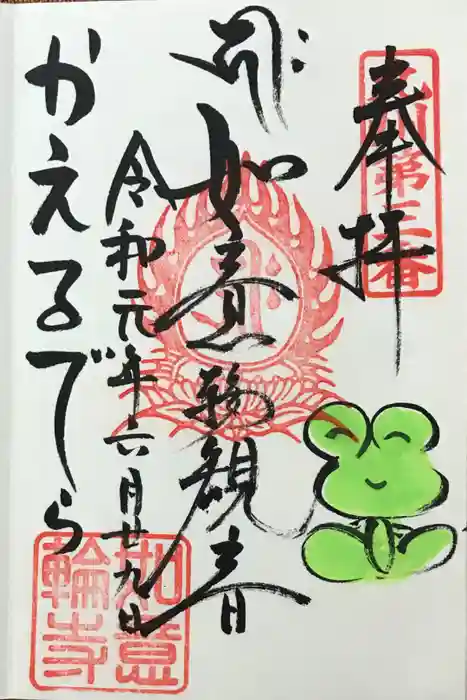 奉拝
九州第三番
如意輪観音
令和元年六月廿九日
かえるでら
如意輪寺